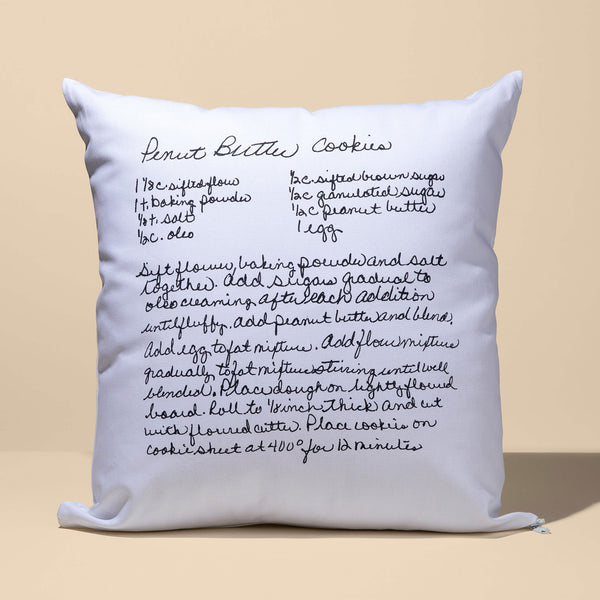 Penut Butter Cookies
1 1/8 c. sifted flow
1 t. baking powder
1/2 t. salt
1/2 c. oleo
1/2 c. sifted brown sugar
1/2 c granulated sugar
1/2 c peanut butter
1 egg
Sift flower, baking powder and salt
together. Add sugars gradual to
oleo creaming after each addition
until fluffy. Add peanut butter and blend.
Add egg to fat mixture. Add flow mixture
gradually to fat mixture stirring until well
blended. Place dough on lightly flowed
board. Roll to 1/8 inch thick and cut
with floured cutter. Place cookies on
cookie sheet at 400° for 12 minutes